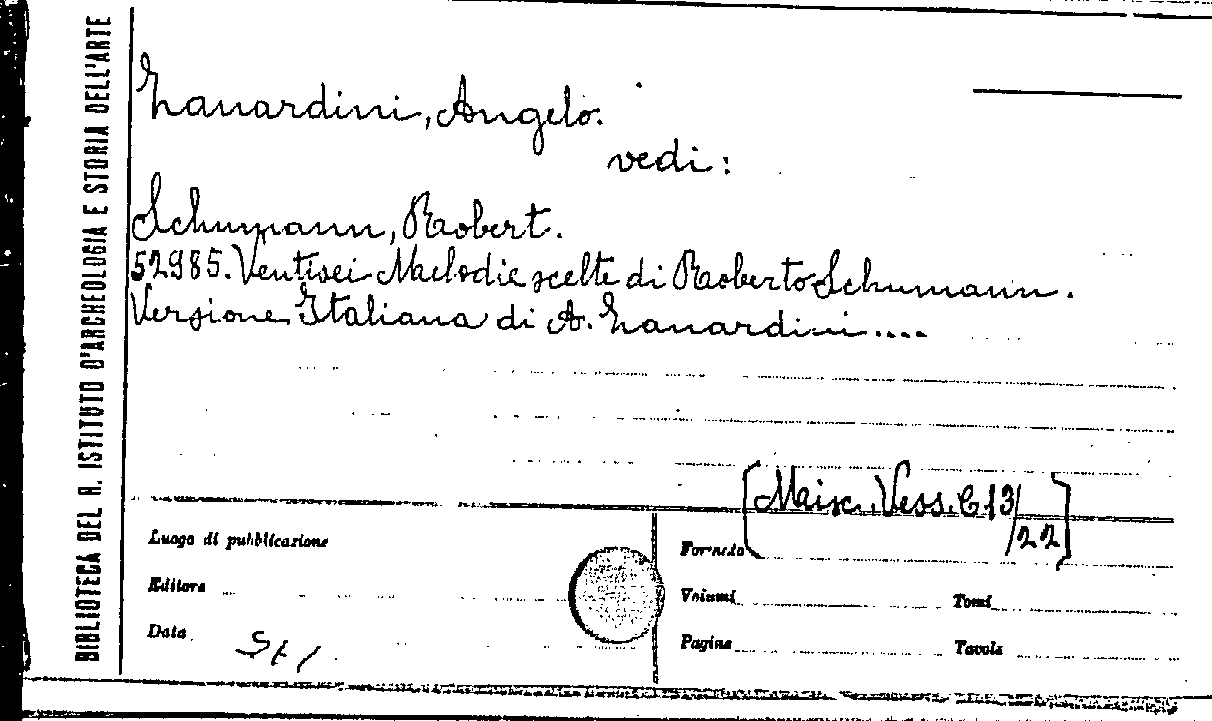 BIBLIOTECA DEL R. ISTITUTO D'ARCHEOLOGIA E STORIA DELL'ARTE
Zanardini, Angelo.
vedi:
Schumann, Robert.
52985. Ventisei Melodie scelte di Roberto Schumann.
Versione Italiana di A. Zanardini....
[Misc. Vess. C.13/22]
Luogo di pubblicazione
Formato
Editore
Volumi Tomi
Data
Pagine Tavole